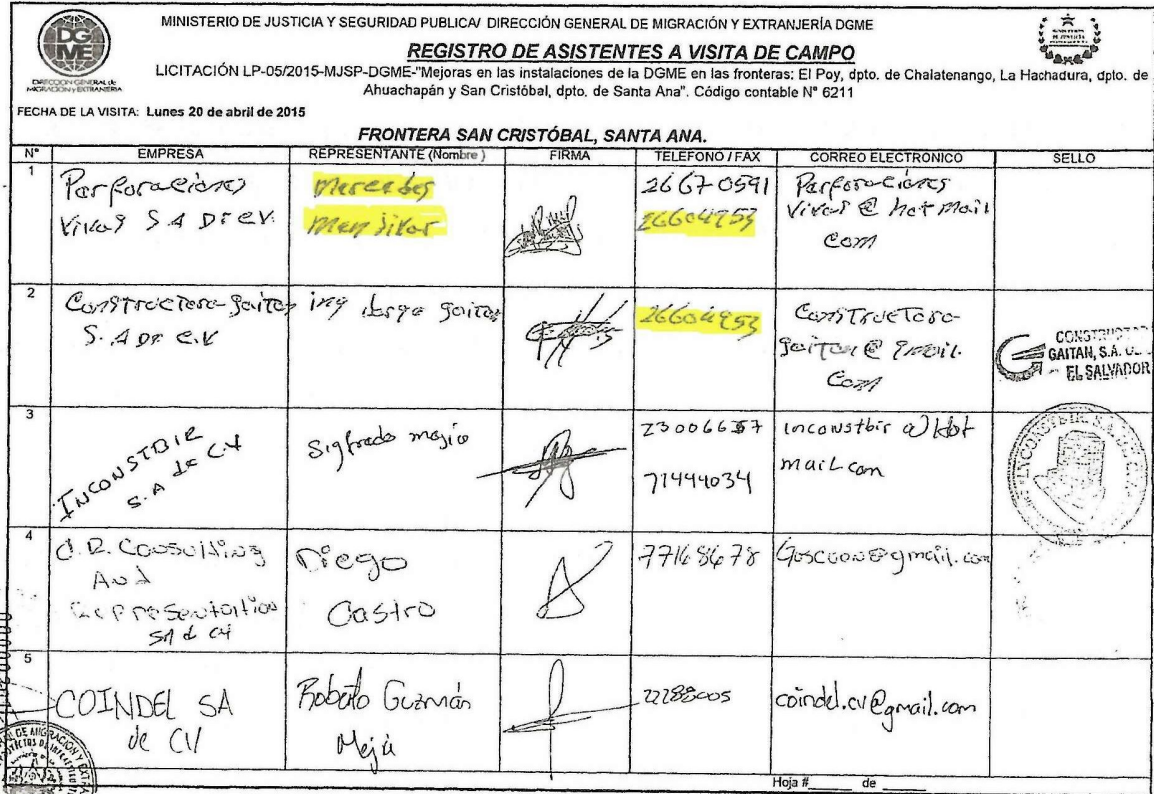 MINISTERIO DE JUSTICIA Y SEGURIDAD PUBLICA/ DIRECCIÓN GENERAL DE MIGRACIÓN Y EXTRANJERÍA DGME
DGME
DIRECCION GENERAL de
MIGRACION y EXTRANJERIA
REGISTRO DE ASISTENTES A VISITA DE CAMPO
LICITACIÓN LP-05/2015-MJSP-DGME-"Mejoras en las instalaciones de la DGME en las fronteras: El Poy, dpto. de Chalatenango, La Hachadura, dpto. de
Ahuachapán y San Cristóbal, dpto. de Santa Ana". Código contable N° 6211
FECHA DE LA VISITA: Lunes 20 de abril de 2015
FRONTERA SAN CRISTÓBAL, SANTA ANA.
N° EMPRESA REPRESENTANTE (Nombre) FIRMA TELEFONO / FAX CORREO ELECTRONICO SELLO
1
Perforaciones
Vivas S A De C.V.
Mercedes
Menjivar
2667 0591
26604953
Perforaciones
Vivas @ hotmail
com
2
Constructora-gaitan
S. A De C.V
ing Jorge gaitan
26604953
Constructora-
gaitan @ gmail.
Com
CONSTRUCT
GAITAN, S.A.
EL SALVADOR
3
INCONSTBIR
S. A de C.V
Sigfrado mejia
23006657
71444034
inconstbir @ Hot
mail com
INCONSTBIR, S.A. DE C.V.
4
C.R. Consulting
And
Representation
SA d CV
Diego
Castro
77168678
@gmail.com
5
COINDEL SA
de CV
Roberto Guzmán
Mejía
22288005
coindel.cv@gmail.com
Hoja #______ de ______